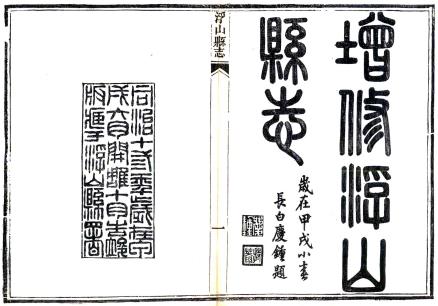 增修浮山
縣志
歲在甲戌小春
長白慶鍾題
浮山縣志
同治十三年歲在甲
戌六月開雕十月
版藏于浮山縣署